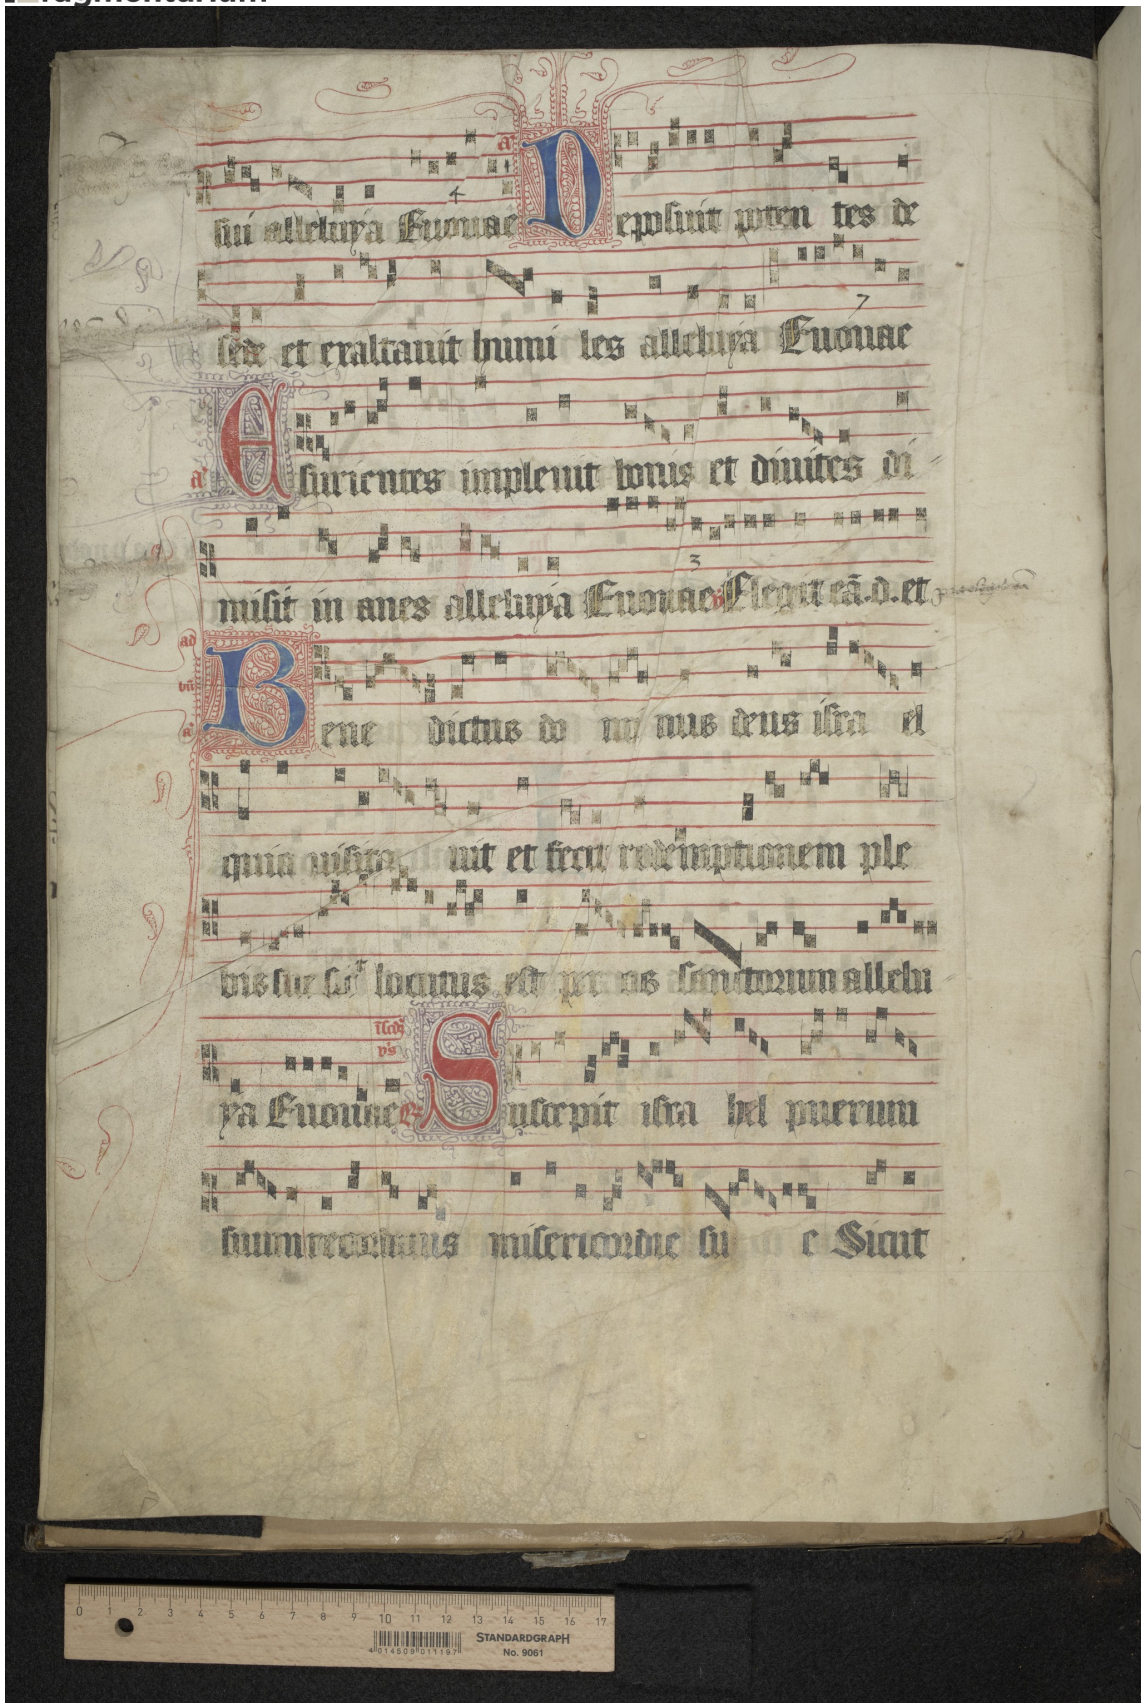 sui alleluya Euouae a Deposuit poten tes de
4
sede et exaltauit humi les alleluya Euouae
7
a Esurientes impleuit bonis et diuites di
misit in anes alleluya Euouae v Elegit eā.d.et
3
ad
bn
a Bene dictus do mi nus deus isra el
quia uisita uit et fecit redemptionem ple
bis sue locutus est per os sanctorum allelu
ya Euouae Suscepit isra hel puerum
suum recordatus misericordie su e Sicut
0 1 2 3 4 5 6 7 8 9 10 11 12 13 14 15 16 17
STANDARDGRAPH
No. 9061
4 014509 011197